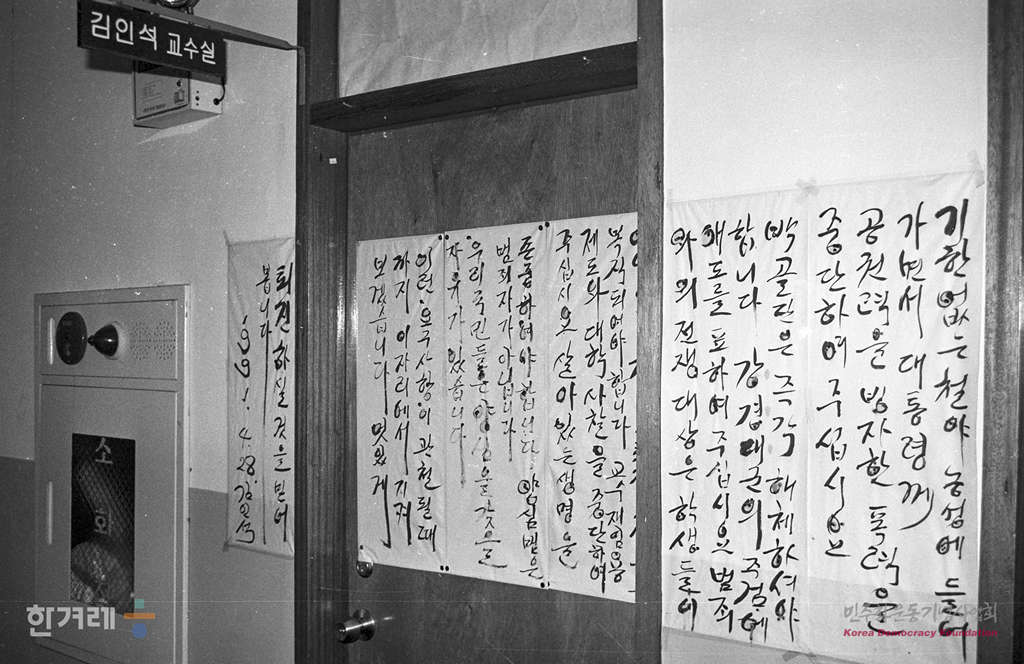 김인석 교수실
기한없는 철야 농성에 들어
가면서 대통령께
공권력을 빙자한 폭력을
중단하여 주십시요
박골단은 즉각 해체하셔야
합니다 강경대군의 주검에
애도를 표하여 주십시요 범죄
와의 전쟁 대상은 학생들이
복직되여야 합니다 교수재임용
제도와 대학사찰을 중단하여
주십시요 살아있는 생명을
존중하여야 합니다. 양심범은
범죄자가 아닙니다
우리 국민들은 양심을 갖을
자유가 있습니다
이런 요구사항이 관철될때
까지 이자리에서 지켜
보겠읍니다 멋있게
퇴진하실 것을 믿어
봅니다
1991. 4. 28. 김인석
소화
한겨레
민주화운동기념사업회
Korea Democracy Foundation